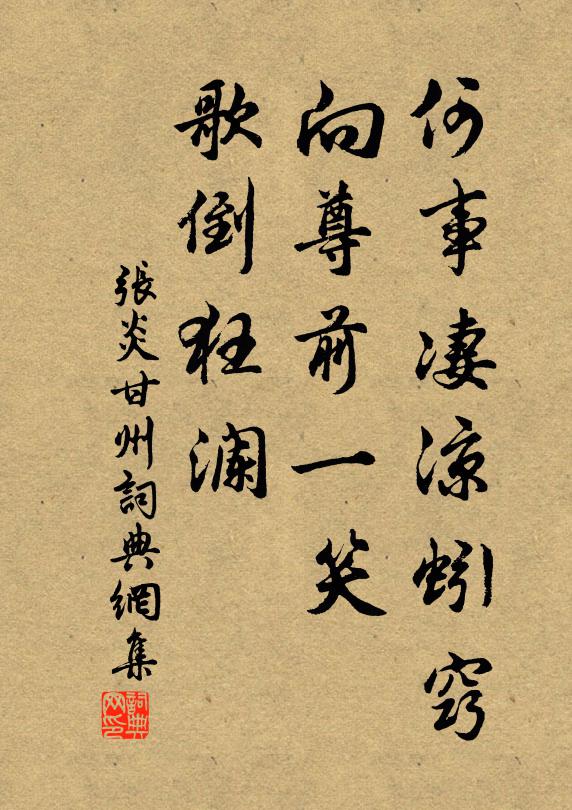 何事淒涼蚓竅
向尊前一笑
歌倒狂瀾
張炎甘州詞典網集
詞典网印